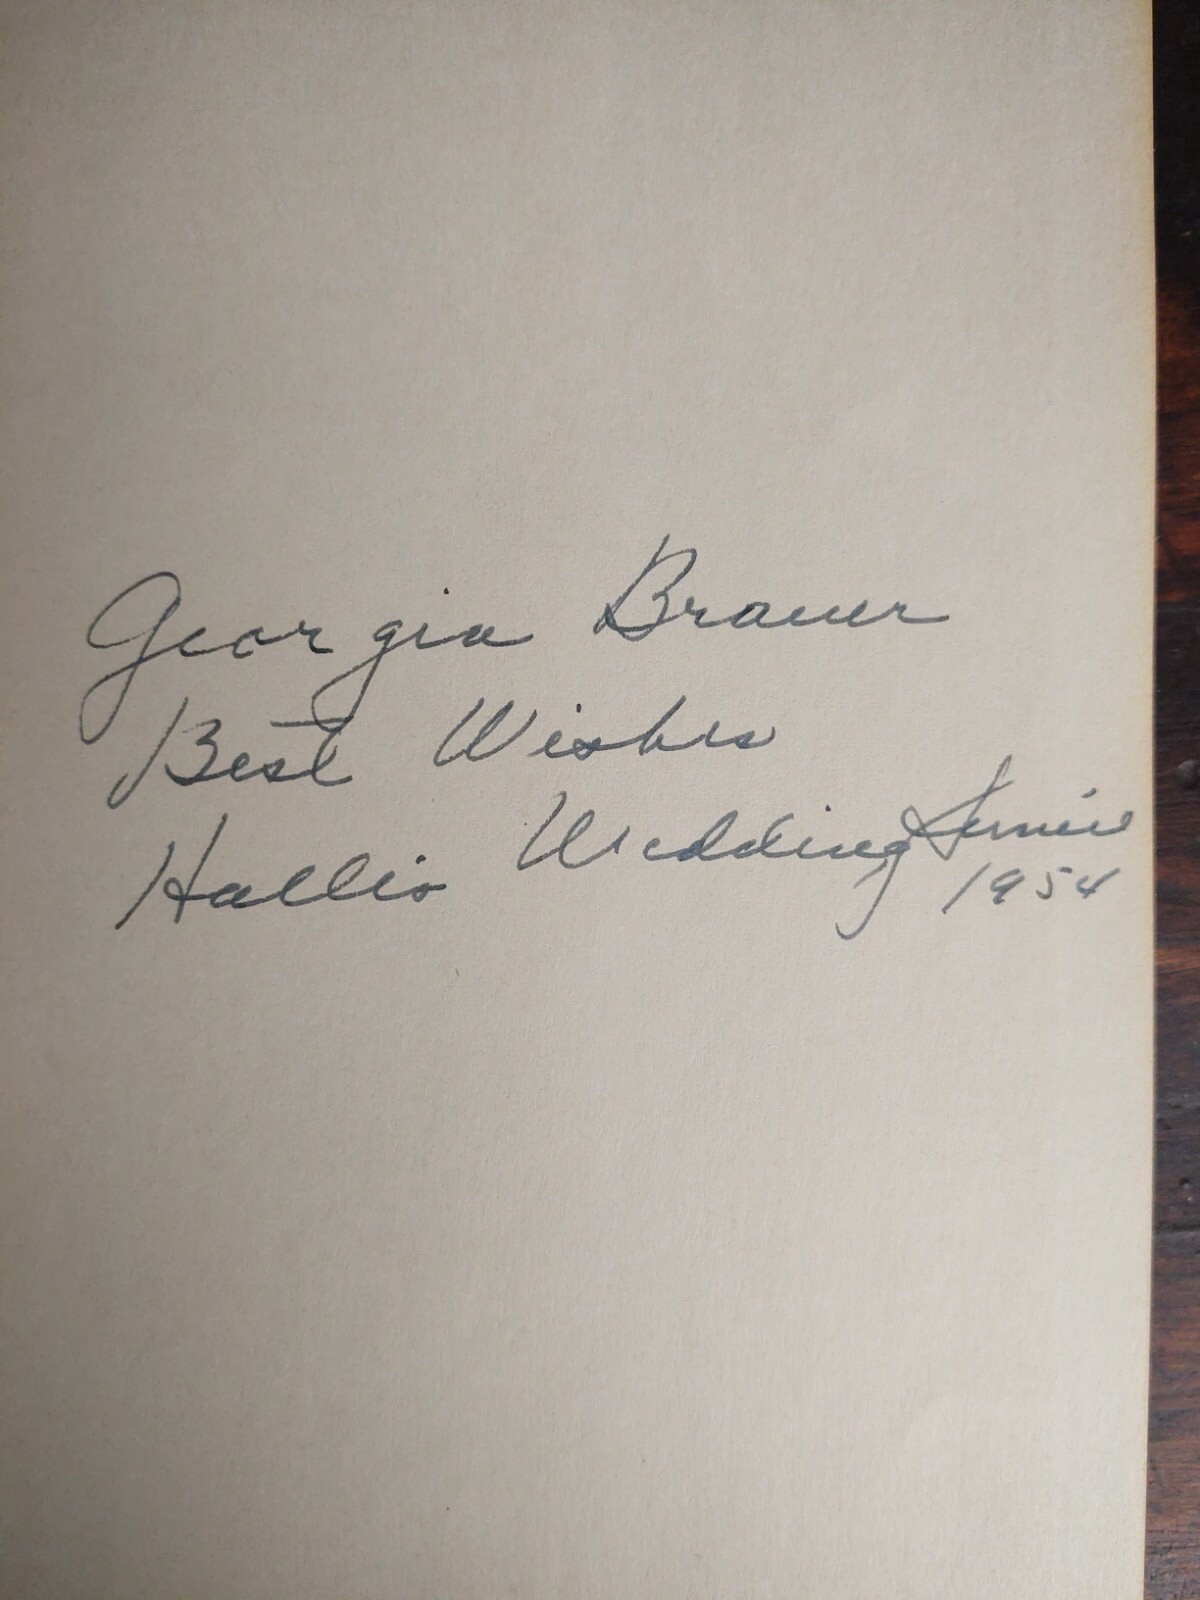 Georgia Brauer
Best Wishes
Hallis Wedding Service
1954